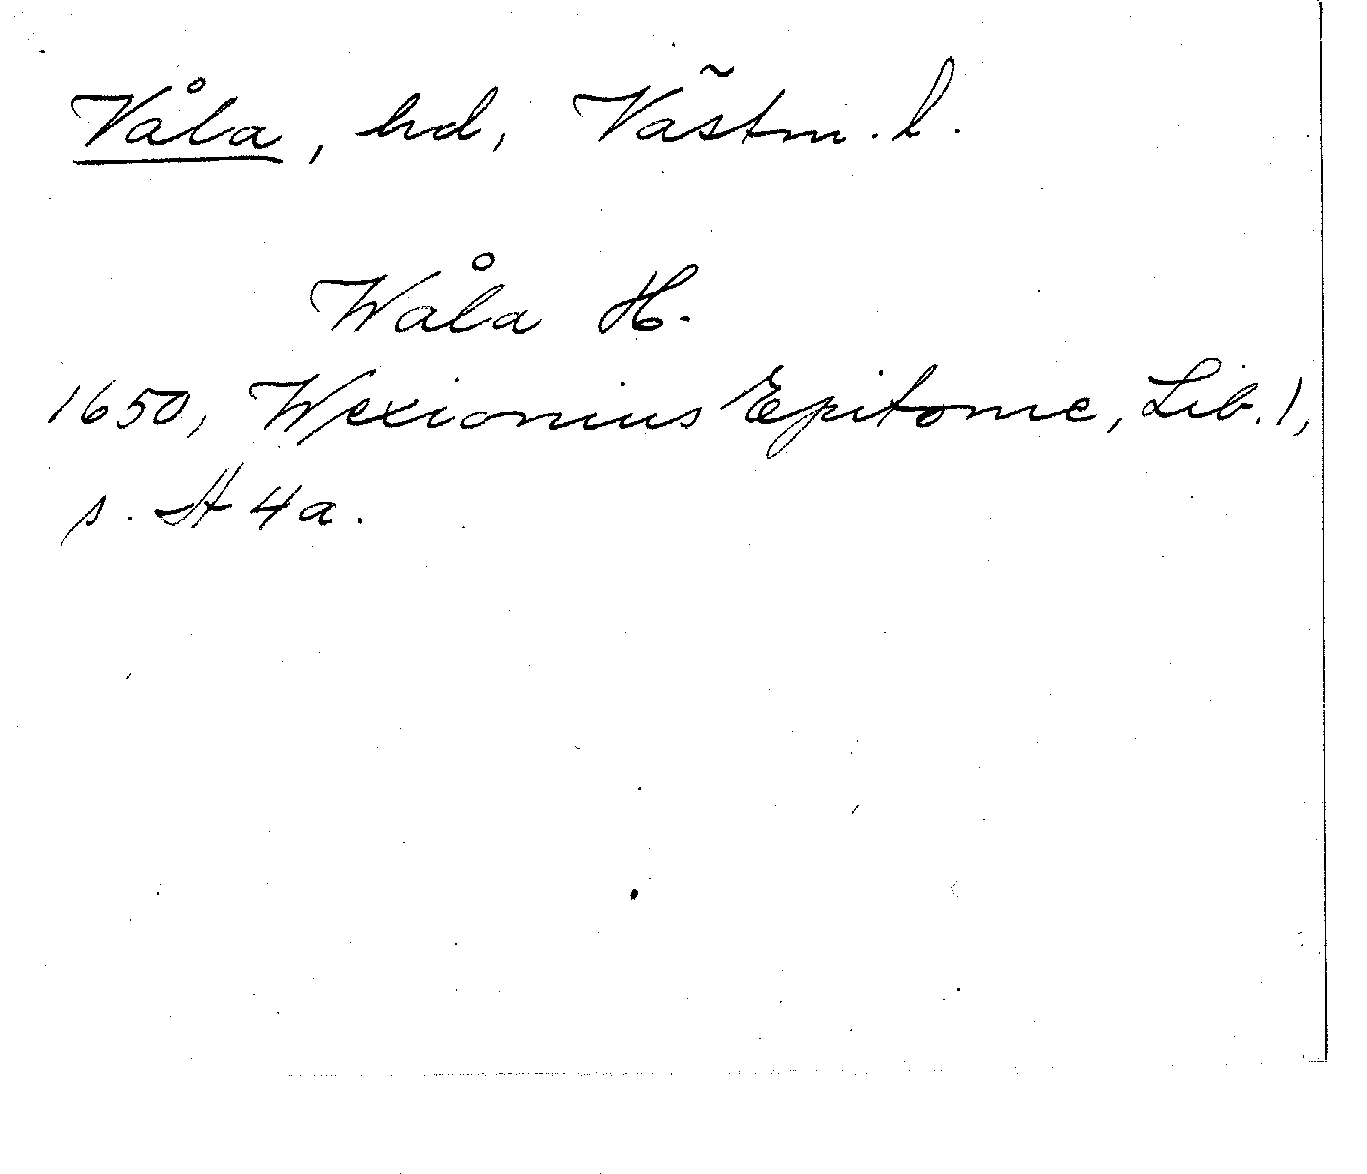 Våla, hd, Västm. l.
Wåla H.
1650, Wexionius Epitome, Lib. 1,
s. A 4a.